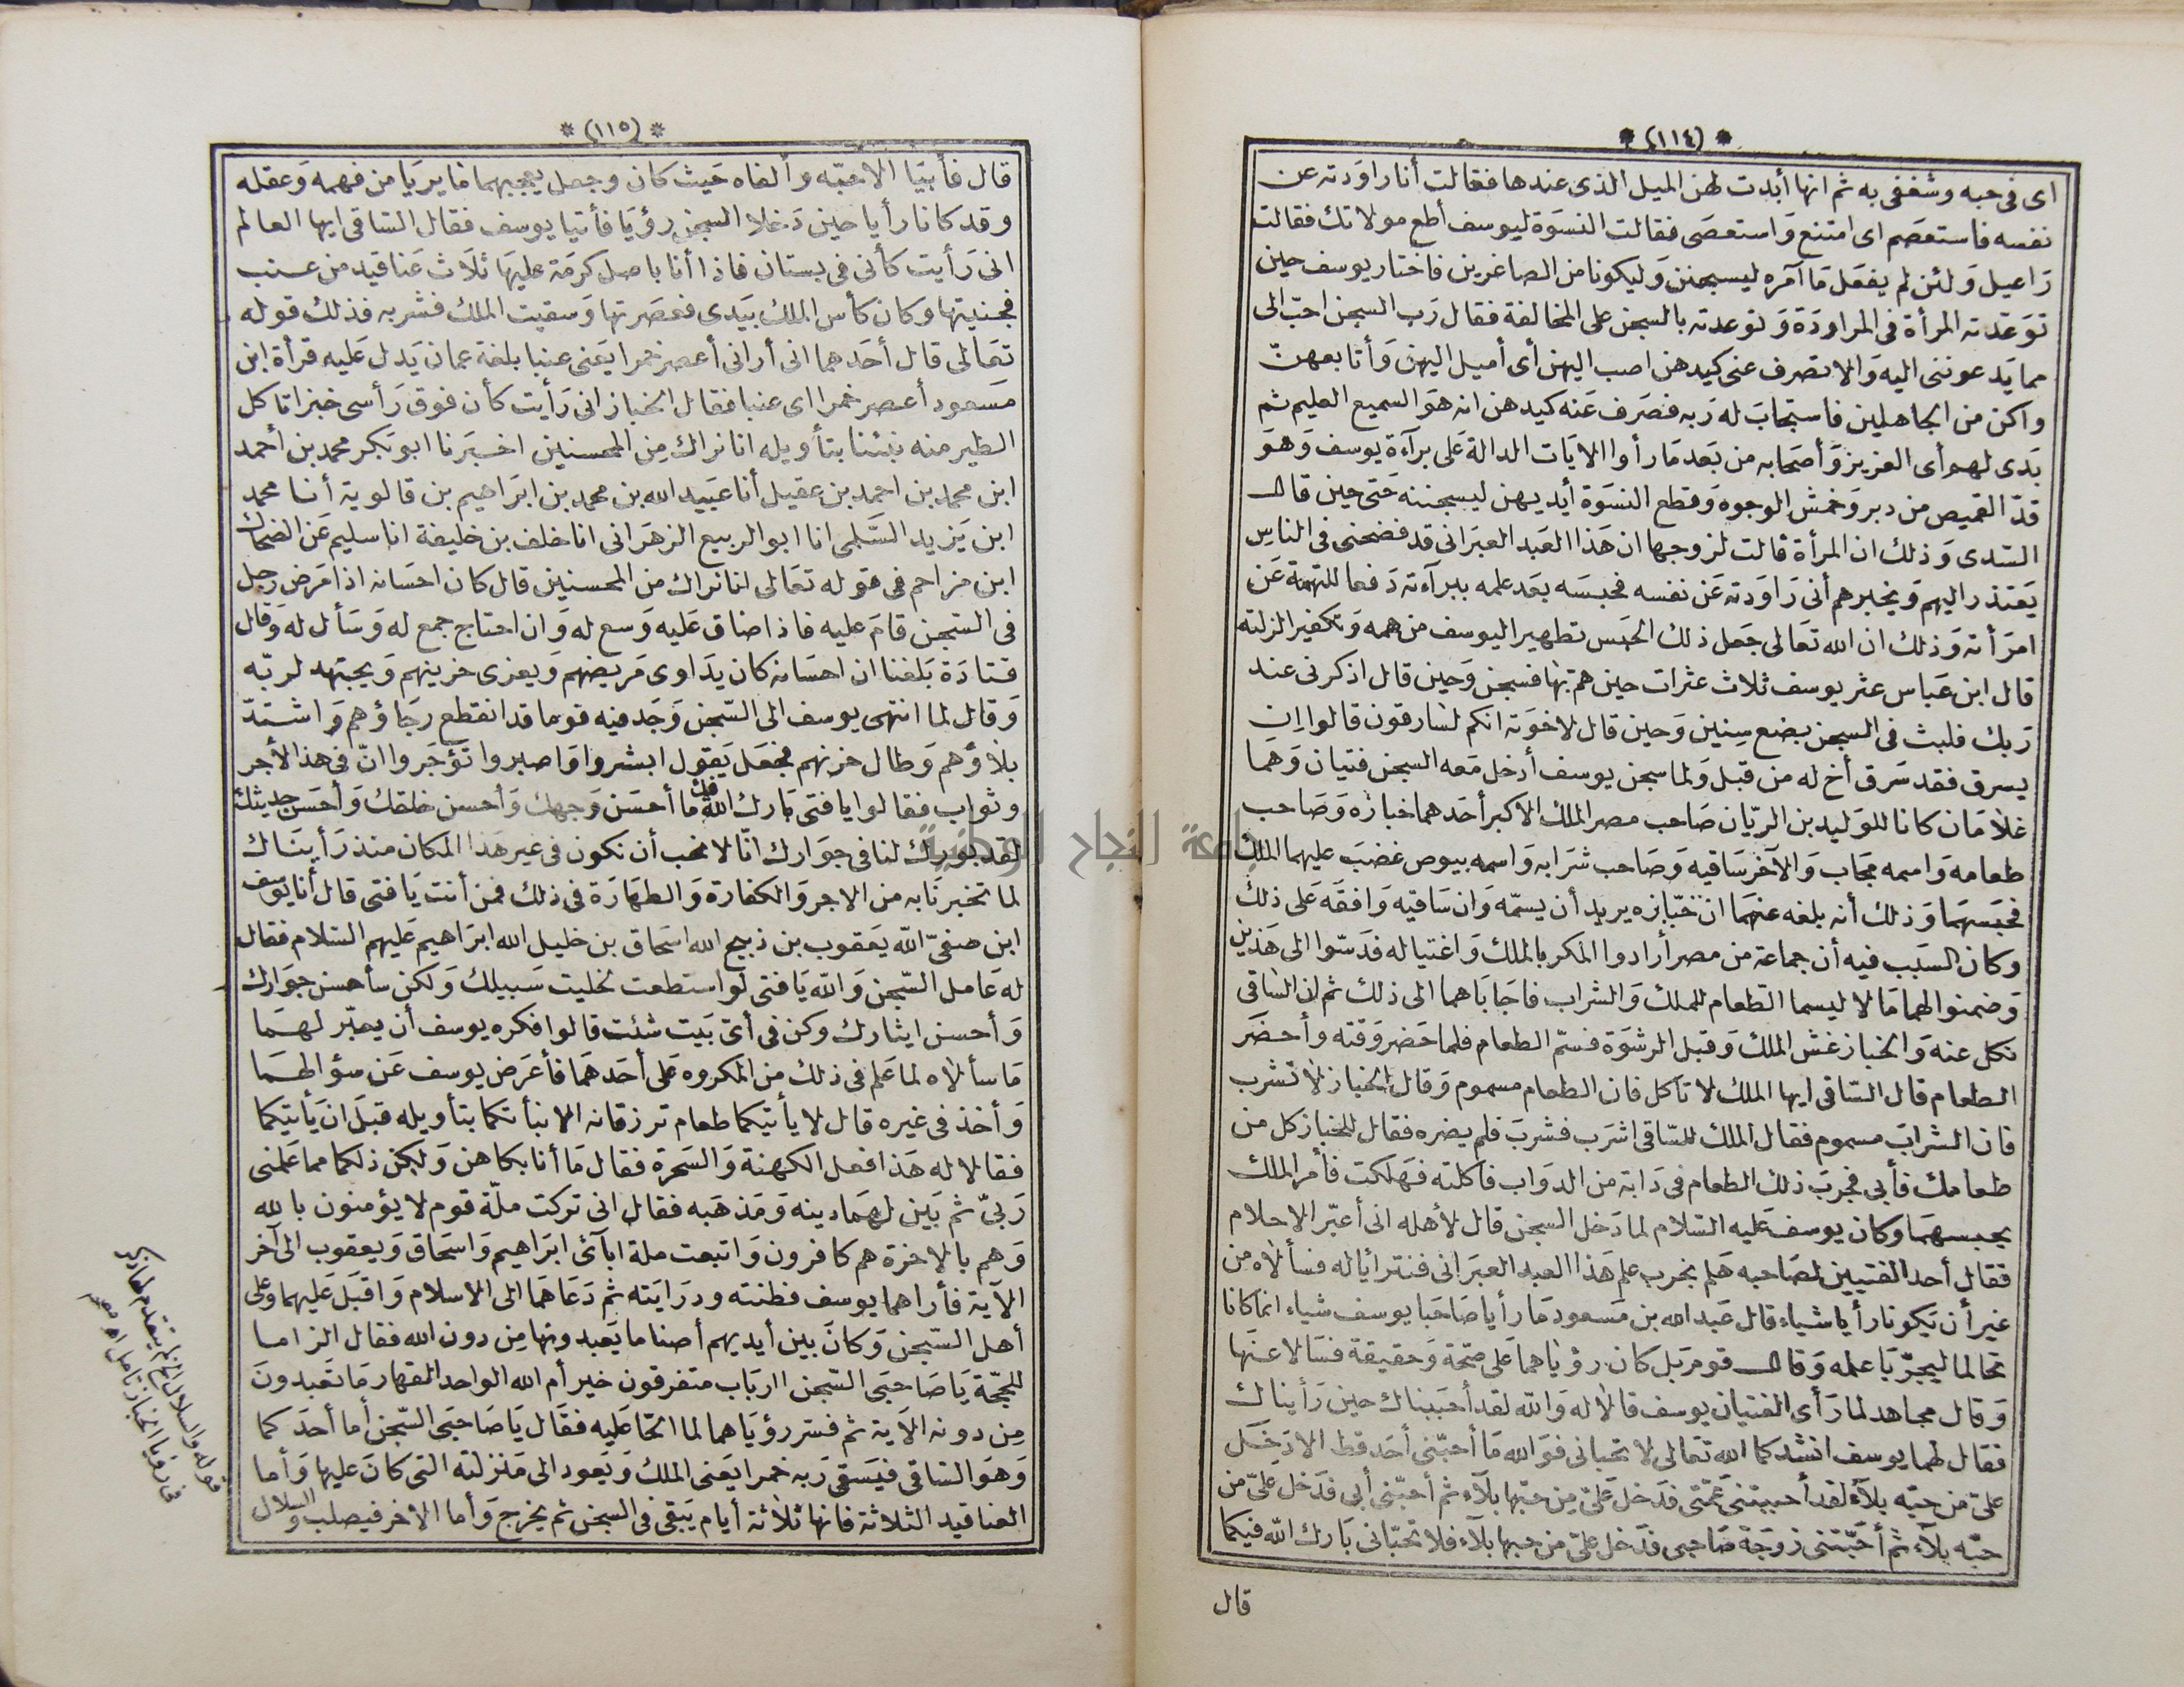 * (١١٤) *
اى فى حبه وشغفى به ثم انها أبدت لهن الميل الذى عندها فقالت أنا راودته عن
نفسه فاستعصم اى امتنع واستعصى فقالت النسوة ليوسف أطع مولاتك فقالت
راعيل ولئن لم يفعل ما آمره ليسجنن وليكونا من الصاغرين فاختار يوسف حين
توعدته المرأة فى المراودة وتوعدته بالسجن على المخالفة فقال رب السجن احب الى
مما يدعوننى اليه والا تصرف عنى كيدهن اصب اليهن أى أميل اليهن وأتابعهنّ
واكن من الجاهلين فاستجاب له ربه فصرف عنه كيدهن انه هو السميع العليم ثم
بدى لهم أى العزيز وأصحابه من بعد ما رأوا الايات الدالة على برآءة يوسف وهو
قدّ القميص من دبر وخمش الوجوه وقطع النسوة أيديهن ليسجننه حتى حين قال
السدى وذلك ان المرأة قالت لزوجها ان هذا العبد العبرانى قد فضحنى فى الناس
يعتذر اليهم ويخبرهم أنى راودته عن نفسه فحبسه بعد علمه ببرآءته دفعا للتهمة عن
امرأته وذلك ان الله تعالى جعل ذلك الحبس تطهيرا ليوسف من همه وتكفيرا لزلته
قال ابن عباس عثر يوسف ثلاث عثرات حين هم بها فسجن وحين قال اذكرنى عند
ربك فلبث فى السجن بضع سنين وحين قال لاخوته انكم لسارقون قالوا ان
يسرق فقد سرق أخ له من قبل ولما سجن يوسف أدخل معه السجن فتيان وهما
غلامان كانا للوليد بن الريّان صاحب مصر الملك الاكبر أحدهما خبازه وصاحب
طعامه واسمه مجاب والآخر ساقيه وصاحب شرابه واسمه بيوص غضب عليهما الملك
فحبسهما وذلك أنه بلغه عنهما ان خبّازه يريد أن يسمّه وان ساقيه وافقه على ذلك
وكان السبب فيه أن جماعة من مصر أرادوا المكر بالملك واغتياله فدسّوا الى هذين
وضمنوا لهما مالا ليسما الطعام للملك والشراب فاجاباهما الى ذلك ثم ان الساقى
نكل عنه والخباز غش الملك وقبل الرشوة فسمّ الطعام فلما حضر وقته وأحضر
الطعام قال السّاقى ايها الملك لا تاكل فان الطعام مسموم وقال الخباز لا تشرب
فان الشراب مسموم فقال الملك للسّاقى اشرب فشرب فلم يضره فقال للخباز كل من
طعامك فأبى فجرب ذلك الطعام فى دابة من الدواب فاكلته فهلكت فأمر الملك
بحبسهما وكان يوسف عليه السّلام لما دخل السجن قال لأهله انى أعبّر الاحلام
فقال أحد الفتيين لصاحبه هلم نجرب علم هذا العبد العبرانى فنترأيا له فسألاه من
غير أن يكونا رأيا شياء قال عبد الله بن مسعود ما رأيا صاحبا يوسف شياء انما كانا
تحالما ليجرّبا علمه وقال قوم بل كان رؤياهما على صحّة وحقيقة فسالا عنها
وقال مجاهد لما رأى الفتيان يوسف قالا له والله لقد أحببناك حين رأيناك
فقال لهما يوسف انشدكما الله تعالى لا تحبانى فوالله ما أحبّنى أحد قط الا دخل
علىّ من حبّه بلآء لقد أحببتنى عمّتى فدخل علىّ من حبّها بلآء ثم أحبّنى أبى فدخل علىّ من
حبّه بلآء ثم أحبّتنى زوجة صاحبى فدخل علىّ من حبها بلآء فلا تحبّانى بارك الله فيكما
قال
* (١١٥) *
قال فأبيا الا حبّه وألفاه حيث كان وجعل يعجبهما ما يريا من فهمه وعقله
وقد كانا رأيا حين دخلا السجن رؤيا فأتيا يوسف فقال السّاقى ايها العالم
انى رأيت كأنى فى بستان فاذا أنا باصل كرمة عليها ثلاث عناقيد من عنب
فجنيتها وكان كأس الملك بيدى فعصرتها وسقيت الملك فشربه فذلك قوله
تعالى قال أحدهما انى أرانى أعصر خمرا يعنى عنبا بلغة عمان يدل عليه قرأة ابن
مسعود أعصر خمرا اى عنبا فقال الخباز انى رأيت كأن فوق رأسى خبزا تاكل
الطير منه نبئنا بتأويله انا نراك من المحسنين اخبرنا ابو بكر محمد بن أحمد
ابن محمد بن احمد بن عقيل أنا عبيد الله بن محمد بن ابراهيم بن قالوية أنا محمد
ابن يزيد السّلمى انا ابو الربيع الزهرانى انا خلف بن خليفة انا سليم عن الضحاك
ابن مزاحم فى قوله تعالى انا نراك من المحسنين قال كان احسانه اذا مرض رجل
فى السّجن قام عليه فاذا ضاق عليه وسع له وان احتاج جمع له وسأل له وقال
قتادة بلغنا ان احسانه كان يداوى مريضهم ويعزى حزينهم ويجتهد لربّه
وقال لما انتهى يوسف الى السّجن وجد فيه قوما قد انقطع رجاؤهم واشتدّ
بلاؤهم وطال حزنهم فجعل يقول ابشروا واصبروا تؤجروا انّ فى هذا الأجر
وثواب فقالوا يا فتى بارك الله فيك ما أحسن وجهك وأحسن خلقك وأحسن حديثك
لقد بورك لنا فى جوارك انّا لا نحب أن نكون فى غير هذا المكان منذ رأيناك
لما تخبرنا به من الاجر والكفارة والطهارة فى ذلك فمن أنت يا فتى قال أنا يوسف
ابن صفىّ الله يعقوب بن ذبيح الله اسحاق بن خليل الله ابراهيم عليهم السّلام فقال
له عامل السّجن والله يا فتى لو استطعت لخليت سبيلك ولكن سأحسن جوارك
وأحسن ايثارك وكن فى أىّ بيت شئت قالوا فكره يوسف أن يعبّر لهما
ما سألاه لما علم فى ذلك من المكروه على أحدهما فأعرض يوسف عن سؤالهما
وأخذ فى غيره قال لا يأتيكما طعام ترزقانه الا نبأتكما بتأويله قبل ان يأتيكما
فقالا له هذا فعل الكهنة والسحرة فقال ما أنا بكاهن ولكن ذلكما مما علمنى
ربىّ ثم بين لهما دينه ومذهبه فقال انى تركت ملّة قوم لا يؤمنون بالله
وهم بالاخرة هم كافرون واتبعت ملة ابآئى ابراهيم واسحاق ويعقوب الى آخر
الآية فأراهما يوسف فطنته ودرايته ثم دعاهما الى الاسلام واقبل عليهما وعلى
أهل السّجن وكان بين أيديهم أصناما يعبدونها من دون الله فقال الزاما
للحجّة يا صاحبى السّجن اارباب متفرقون خير أم الله الواحد القهار ما تعبدون
من دونه الآية ثم فسر رؤياهما لما الحّا عليه فقال يا صاحبى السّجن أما أحدكما
وهو الساقى فيسقى ربه خمرا يعنى الملك ويعود الى منزلته التى كان عليها وأما
العناقيد الثلاثة فانها ثلاثة أيام يبقى فى السجن ثم يخرج وأما الاخر فيصلب والسلال
قوله والسلال الخ لم يتقدم لها ذكر
فى رؤيا الخباز تامل اه
جامعة النجاح الوطنية